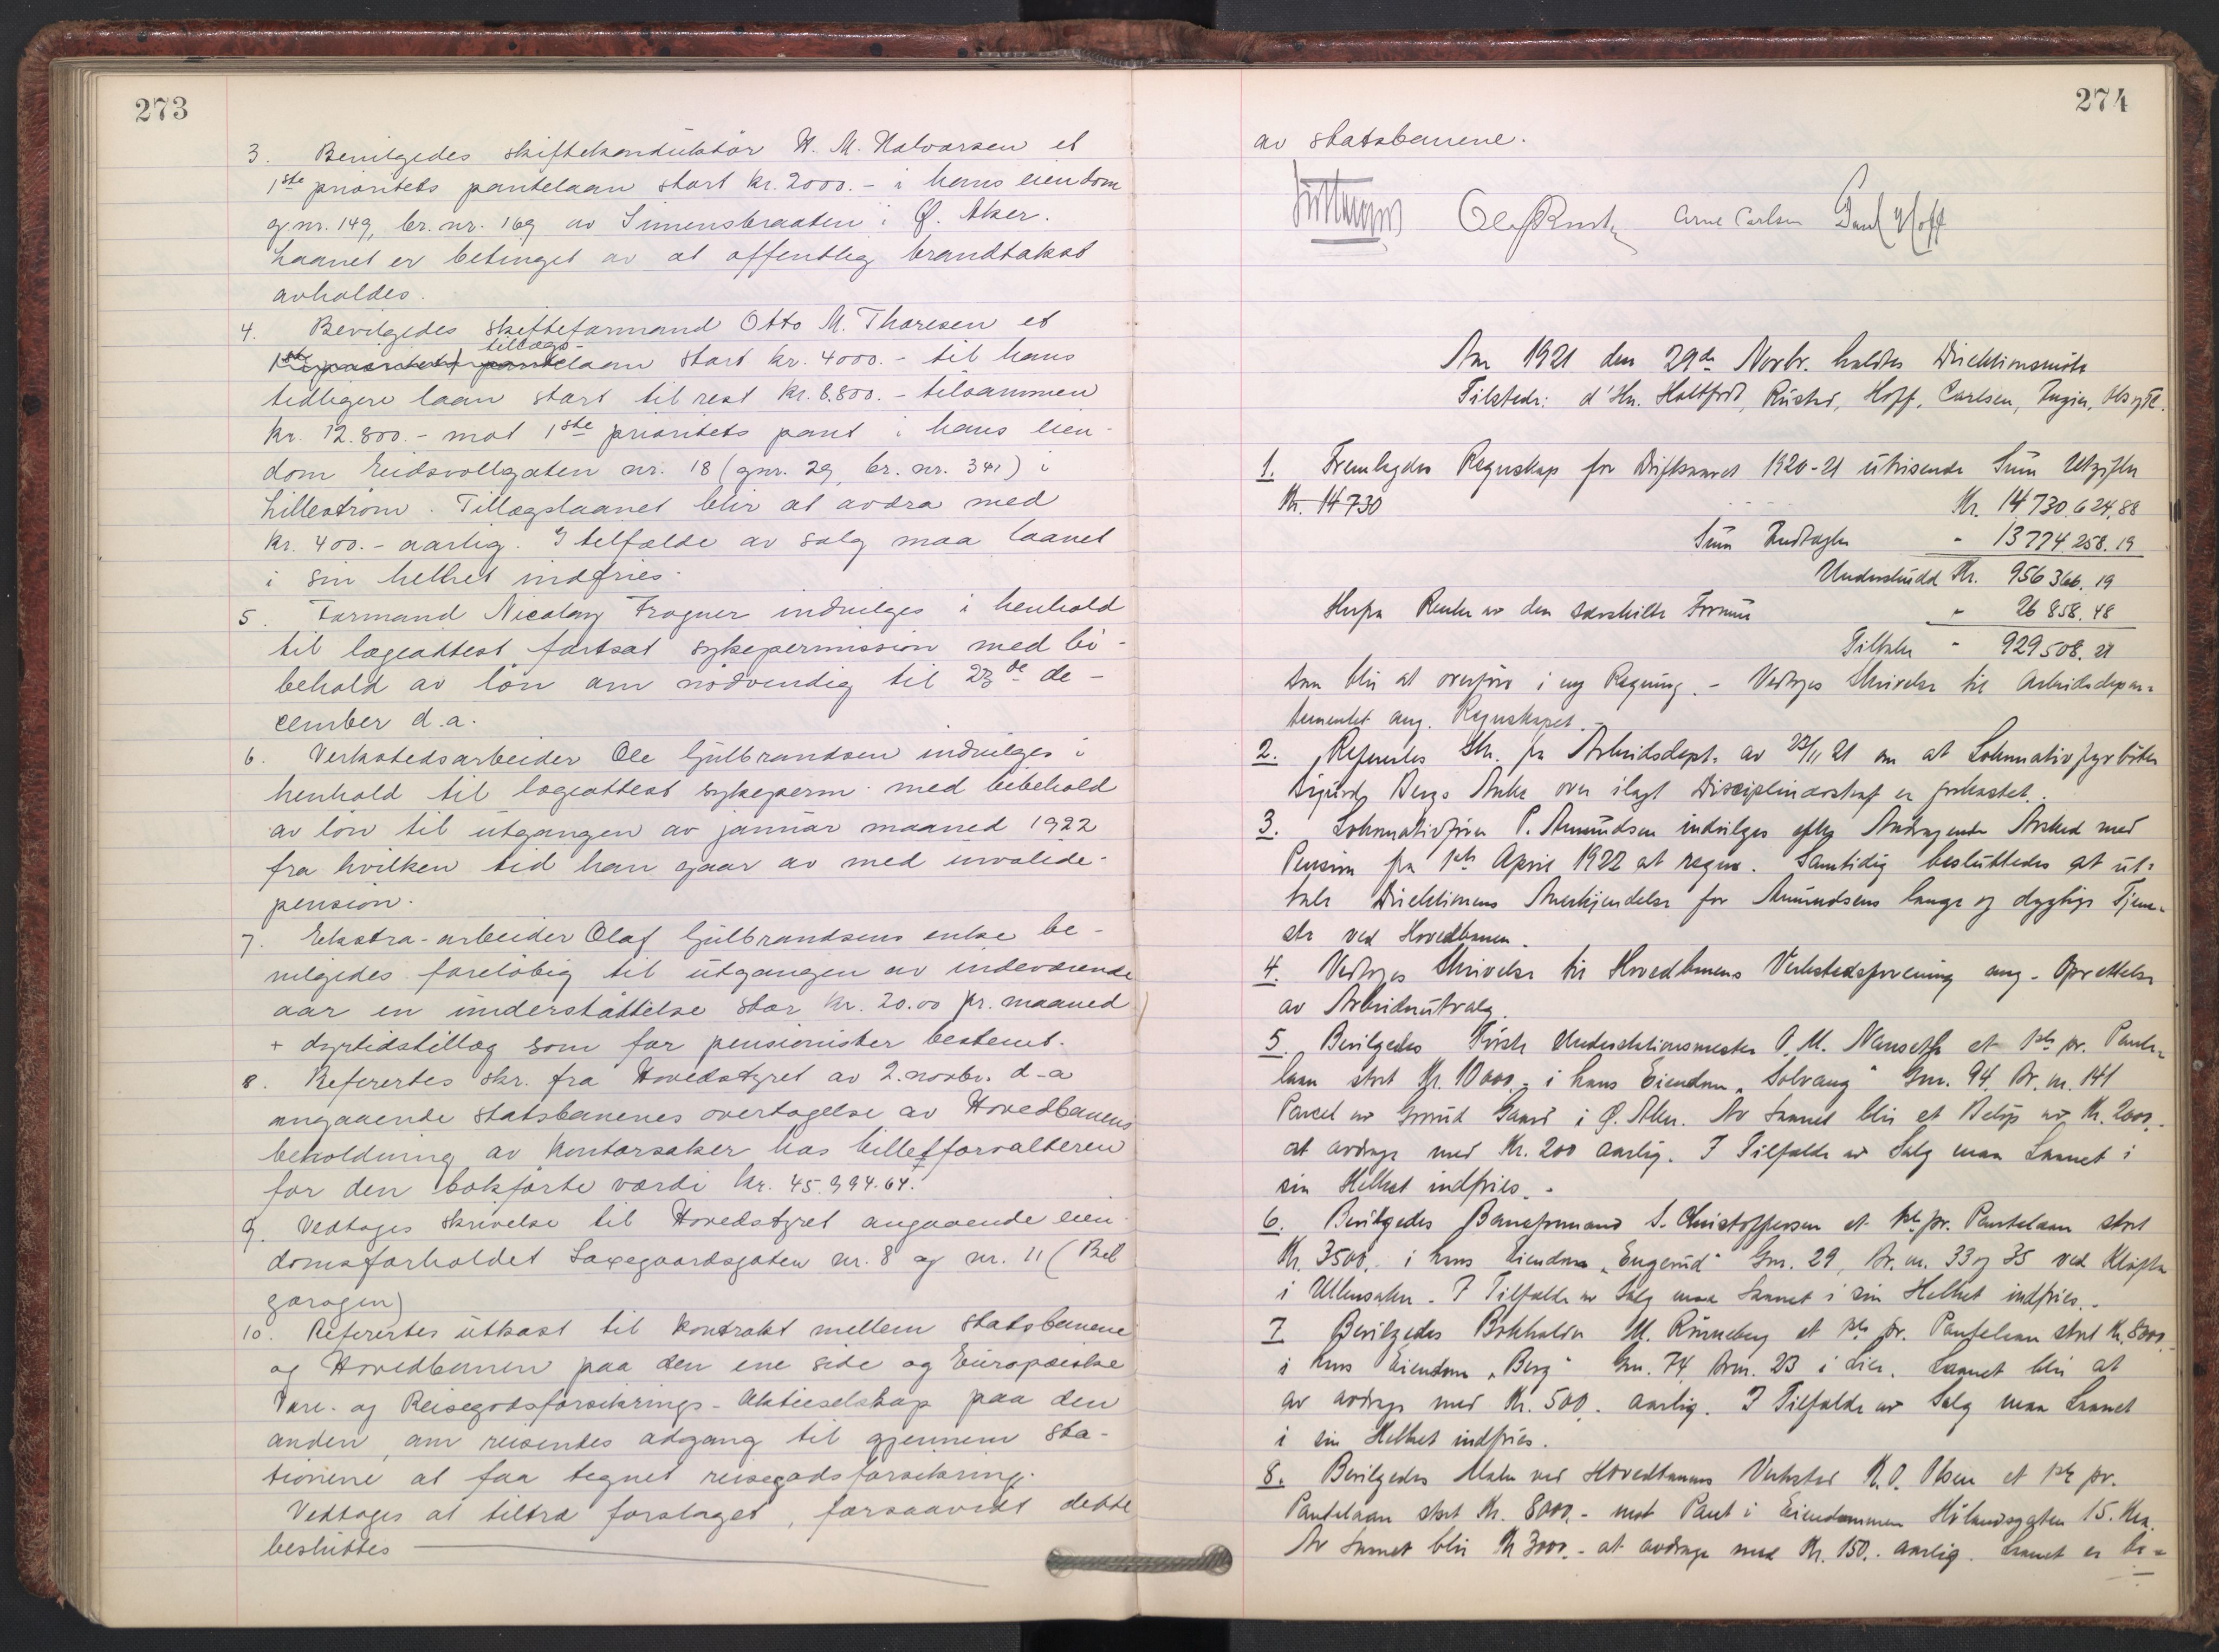 273
3. Bevilgedes skiftekonduktør H. M. Halvorsen et
1ste prioritets pantelaan stort kr. 2000.- i hans eiendom
g.nr. 149, br. nr. 169 av Simensbraaten i Ø. Aker.
Laanet er betinget av at offentlig brandtakst
avholdes.
4. Bevilgedes skifteformand Otto M. Thoresen et
tillægs-
1ste prioritets pantelaan stort kr. 4000.- til hans
tidligere laan stort til rest kr. 8.800.- tilsammen
kr. 12.800.- mot 1ste prioritets pant i hans eien-
dom Eidsvollgaten nr. 18 (gnr. 29, br. nr. 341) i
Lillestrøm. Tillægslaanet blir at avdra med
kr. 400.- aarlig. I tilfælde av salg maa laanet
i sin helhet indfries.
5. Formand Nicolay Frogner indvilges i henhold
til lægeattest fortsat sykepermission med bi-
behold av løn om nødvendig til 23de de-
cember d.a.
6. Verkstedsarbeider Ole Gulbrandsen indvilges i
henhold til lægeattest sykeperm. med bebehold
av løn til utgangen av januar maaned 1922
fra hvilken tid han gaar av med invalide-
pension.
7. Ekstra-arbeider Olaf Gulbrandsens enke be-
vilgedes foreløbig til utgangen av indeværende
aar en understøttelse stor kr. 20.00 pr. maaned
+ dyrtidstillæg som for pensionister bestemt.
8. Referertes skr. fra Hovedstyret av 2. novbr. d-a
angaaende statsbanenes overtagelse av Hovedbanens
beholdning av kontorsaker hos billetforvalteren
for den bokførte værdi kr. 45.994.64.
9. Vedtoges skrivelse til Hovedstyret angaaende eien-
domsforholdet Saxegaardsgaten nr. 8 og nr. 11 (Bil
garagen)
10. Referertes utkast til kontrakt mellem Statsbanene
og Hovedbanen paa den ene side og Europæiske
Vare- og Reisegodsforsikrings-Aktieselskap paa den
anden, om reisendes adgang til gjennem sta-
tionene at faa tegnet reisegodsforsikring.
Vedtoges at tiltræ forslaget, forsaavidt dette
besluttes
274
av statsbanene.
Arne Carlsen Paul Hoff
Aar 1921 den 29de Novbr. holdtes Direktionsmøte
Tilstede: d'Hr. Holtfodt, Rustad, Hoff, Carlsen,
1. Fremlagdes Regnskap for Driftsaaret 1920-21 utvisende Sum Utgifter
Kr. 14730 Kr. 14 730.624,88
Sum Indtægter " 13 774 258.19
Underskudd Kr. 956 366.19
Herfra Renter av den særskilte Formue " 26 858.48
Tilbake " 929 508.21
som blir at overføre i ny Regning. - Vedtoges Skrivelse til Arbeidsdepar-
tementet ang. Regnskapet.-
2. Referertes Skr. fra Arbeidsdept. av 23/11 21 om at Lokomotivfyrbøter
Sigurd Bergs Anke over ilagt Disciplinærstraf er forkastet.
3. Lokomotivfører P. Amundsen indvilges efter Andragende Avsked med
Pension fra 1ste April 1922 at regne. Samtidig besluttedes at ut-
tale Direktionens Anerkjendelse for Amundsens lange og dygtige Tjene-
ste ved Hovedbanen.
4. Vedtoges Skrivelse til Hovedbanens Verkstedsforening ang. Oprettelse
av Arbeiderutvalg.
5. Bevilgedes Første Understationsmester O. M. Nanseth et 1ste pr. Pante-
laan stort Kr. 10000.- i hans Eiendom "Solvang" Gnr. 94, Br. nr. 141
Parcel av Grorud Gaard i Ø. Aker. Av Laanet blir et Beløp av Kr. 2000.-
at avdrage med Kr. 200 aarlig. I Tilfælde av Salg maa Laanet i
sin Helhet indfries.-
6. Bevilgedes Baneformand S. Christoffersen et 1ste pr. Pantelaan stort
Kr. 3500.- i hans Eiendom "Engerud" Gnr. 29, Br. nr. 33 og 35 ved Kløfta
i Ullensaker. I Tilfælde av Salg maa Laanet i sin Helhet indfries.-
7 Bevilgedes Bokholder M. Rønneberg et 1ste pr. Pantelaan stort Kr. 8000.-
i hans Eiendom "Berg" Gnr. 74, Brnr. 23 i Lier. Laanet blir at
av avdrage med Kr. 500.- aarlig. I Tilfælde av Salg maa Laanet
i sin Helhet indfries.
8. Bevilgedes Maler ved Hovedbanens Verksted K. O. Olsen et 1ste pr.
Pantelaan stort Kr. 8000.- mot Pant i Eiendommen Hølandsgaten 15. Kra.
Av Laanet blir Kr 3000.- at avdrage med Kr. 150.- aarlig. Laanet er be-